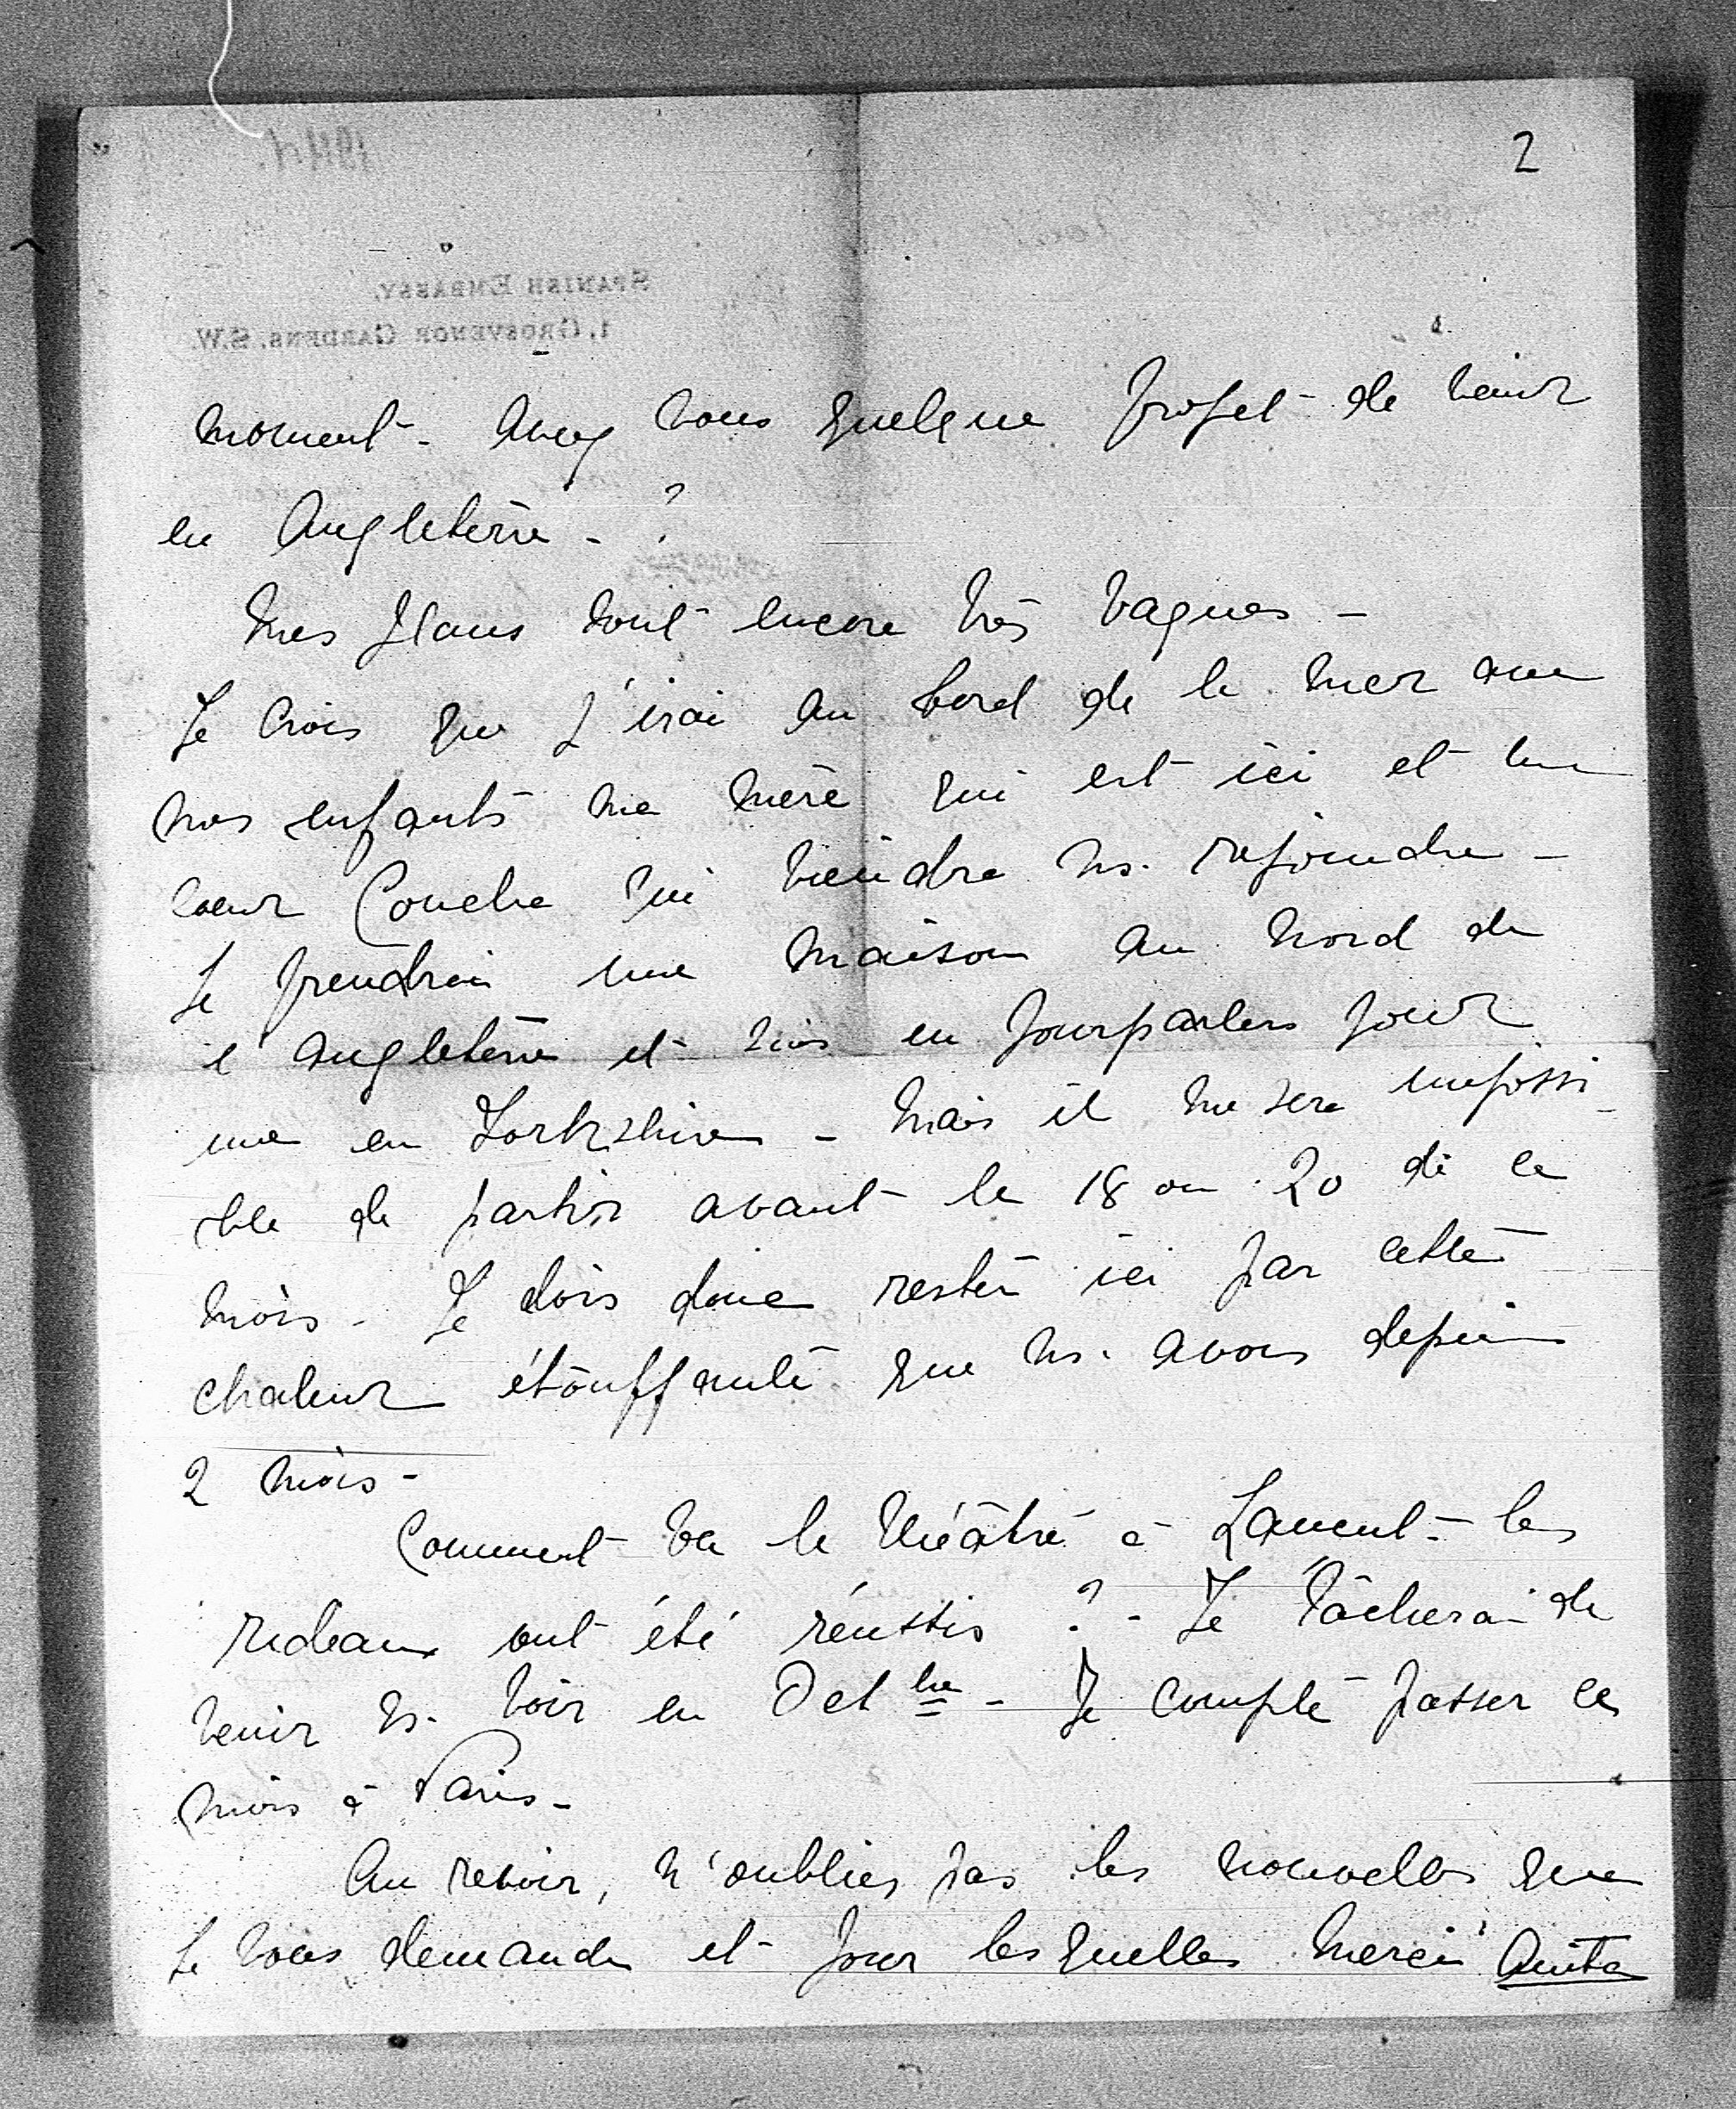 2
SPANISH EMBASSY,
1, GROSVENOR GARDENS. S.W.
moment - Avez vous quelque projet de venir
en Angleterre - ?
Mes plans sont encore très vagues -
Je crois que j'irai au bord de la mer avec
nos enfants ma mère qui est ici et ma
soeur Concha qui viendra ns. rejoindre -
Je prendrai une maison au nord de
l'Angleterre et suis en pourparlers pour
une en Yorkshire - Mais il me sera impossi
ble de partir avant le 18 ou 20 de ce
mois - Je dois donc rester ici par cette
chaleur étouffante que ns. avons depuis
2 mois -
Comment va le théâtre à - les
rideaux ont été réussis ? - Je tâcherai de
venir vs. voir en Octbre - Je compte passer ce
mois à Paris -
Au revoir, n'oubliez pas les nouvelles que
je vous demande et pour lesquelles merci Anita